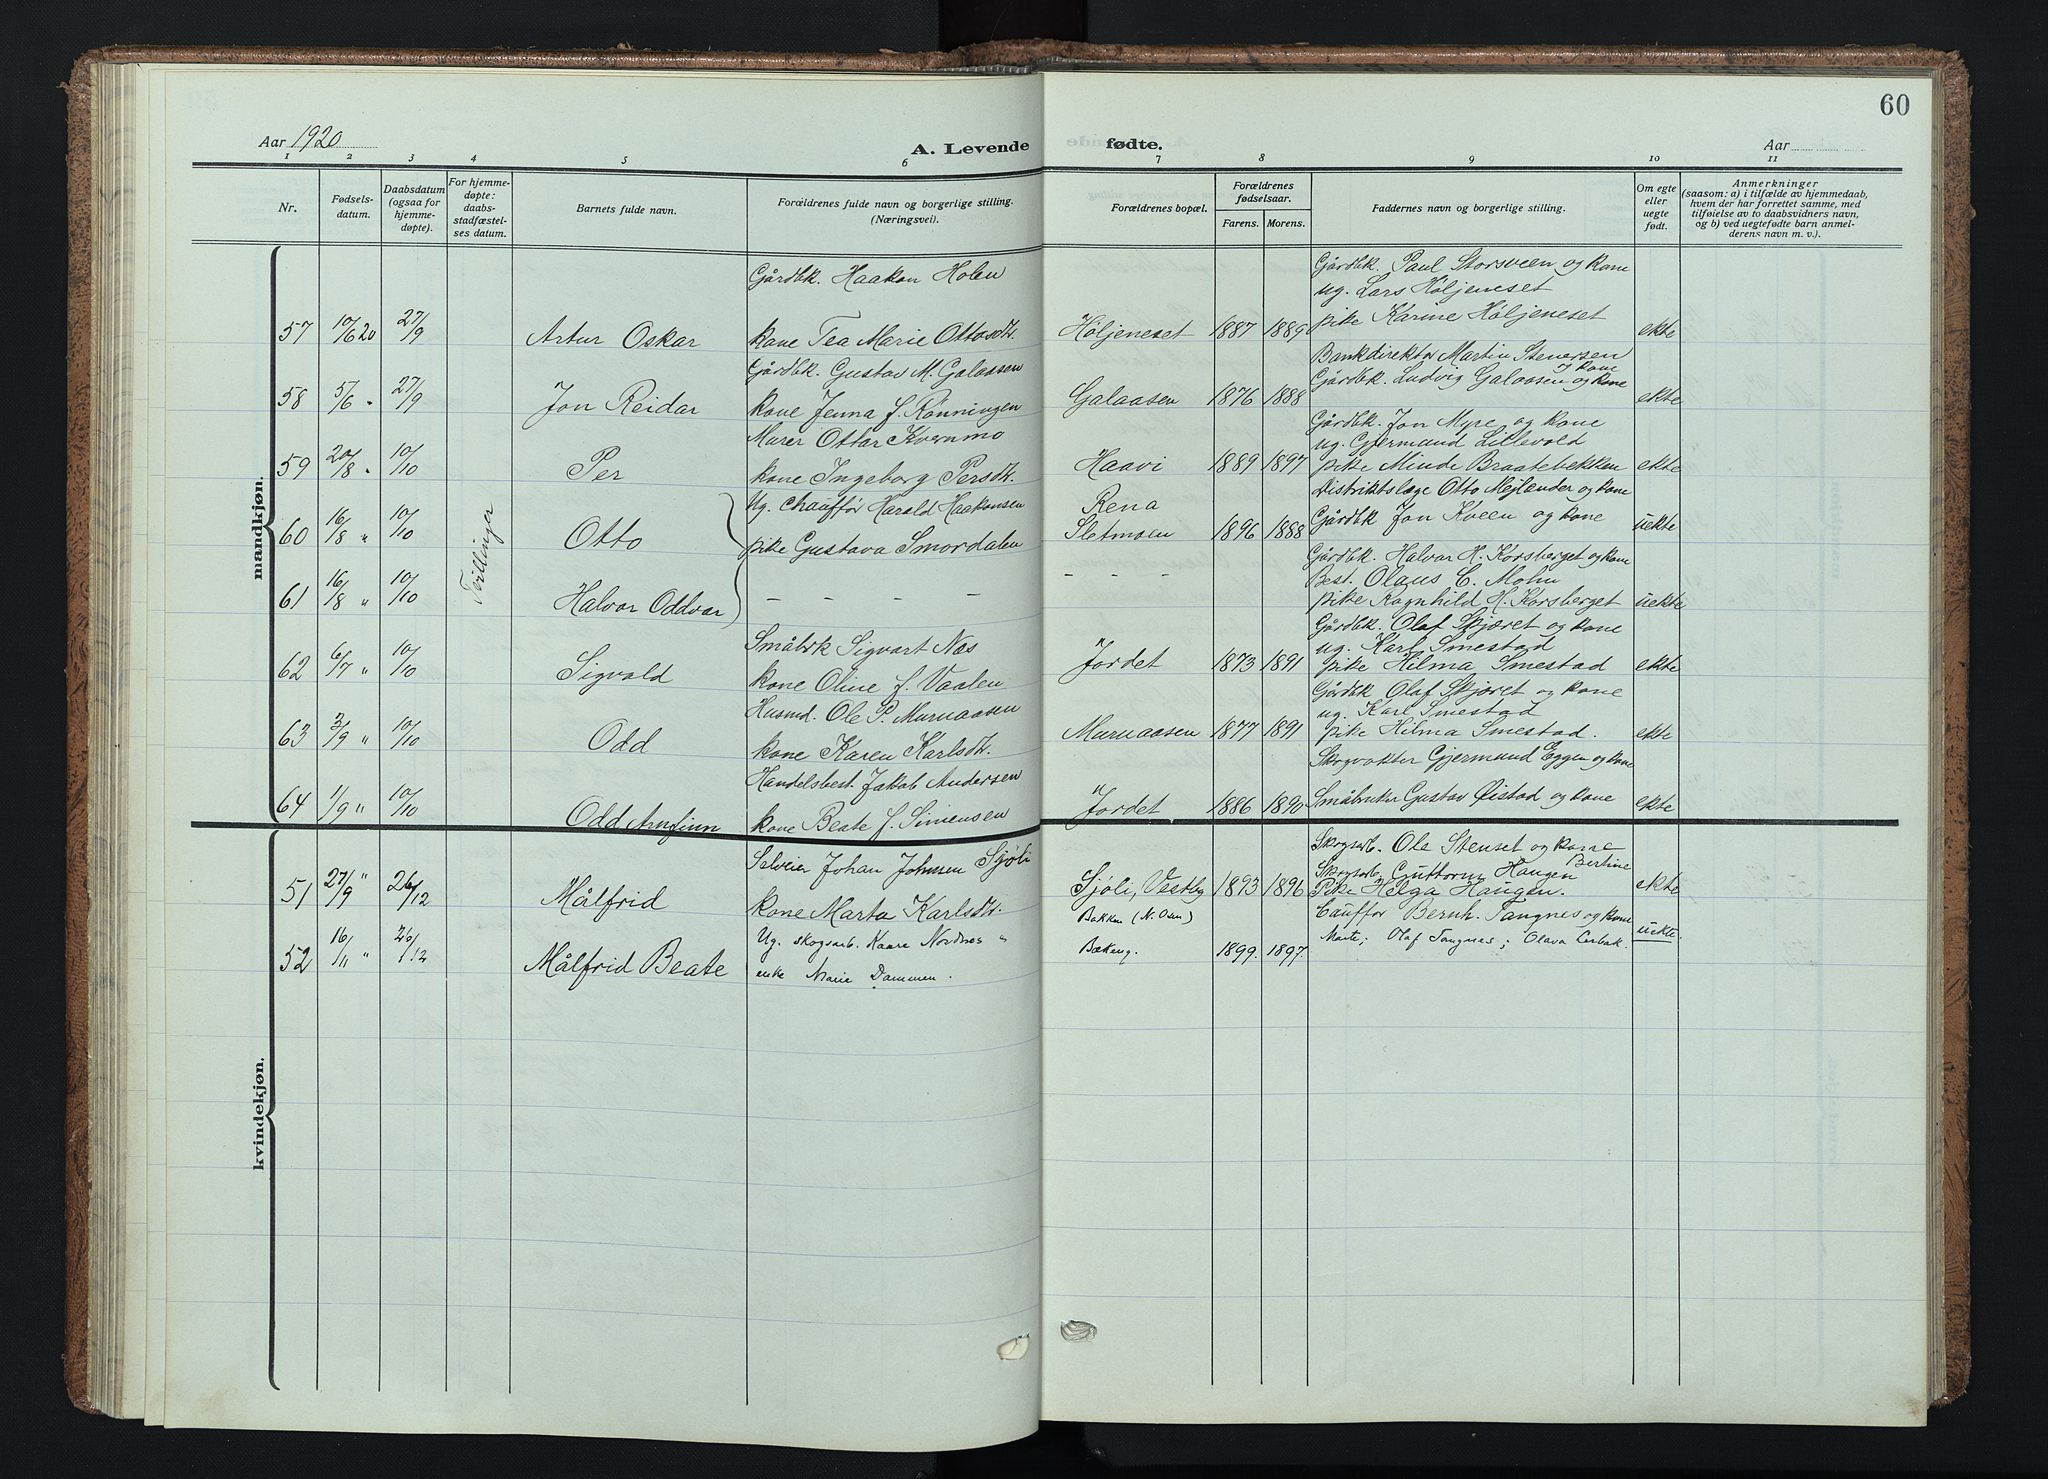 60
Aar 1920
A. Levende fødte.
Aar
1 2 3 4 5 6 7 8 9 10 11
Nr.
Fødsels-
datum.
Daabsdatum
(ogsaa for
hjemme-
døpte).
For hjemme-
døpte:
daabs-
stadfæstel-
ses datum.
Barnets fulde navn.
Forældrenes fulde navn og borgerlige stilling.
(Næringsvei).
Forældrenes bopæl.
Forældrenes
fødselsaar.
Farens. Morens.
Faddernes navn og borgerlige stilling.
Om egte
eller
uegte
født.
Anmerkninger
(saasom: a) i tilfælde av hjemmedaab,
hvem der har forrettet samme, med
tilføielse av to daabsvidners navn,
og b) ved uegtefødte barn anmel-
derens navn m. v.).
mandkjøn.
Gårdbk. Haakon Holen
Gårdbk. Paul Storsveen og kone
ug. Lars Høljeneset
57 10/6 20 27/9 Artur Oskar kone Tea Marie Ottosdtr. Høljeneset 1887 1889 pike Karine Høljeneset ekte
Gårdbk. Gustav M. Galaasen
Bankdirektør Martin Stenersen
og kone
58 5/6 " 27/9 Jon Reidar kone Jenna f. Rønningen Galaasen 1876 1888 Gårdbk. Ludvig Galaasen og kone ekte
Murer Ottar Kvernmo
Gårdbk. Jon Myre og kone
ug. Gjermund Lillevold
59 20/8 " 10/10 Per kone Ingeborg Persdtr. Haavi 1889 1897 pike Minde Braatebekken ekte
Tvillinger
Ug. Chauffør Harald Haakonsen Rena Distriktslæge Otto Mejlænder og kone
60 16/8 " 10/10 Otto pike Gustava Smordalen Sletmoen 1896 1888 Gårdbk Jon Kveen og kone uekte
Gårdbk. Halvar H. Korsberget og kone
Best. Olaus C. Mohn
61 16/8 " 10/10 Halvar Oddvar - - - - - - - - pike Ragnhild H. Korsberget uekte
Småbrk Sigvart Næs
Gårdbk. Olaf Skjæret og kone
ug. Karl Smestad
62 6/7 " 10/10 Sigvald kone Oline f. Vaalen Jordet 1873 1891 pike Hilma Smestad ekte
Husmd. Ole P. Murnaasen
Gårdbk Olaf Skjæret og kone
ug. Karl Smestad
63 3/9 " 10/10 Odd kone Karen Karlsdtr. Murnaasen 1877 1891 pike Hilma Smestad. ekte
Handelsbest. Jakob Andersen
Skogvokter Gjermund Eggen og kone
64 1/9 " 10/10 Odd Arnfinn kone Beate f. Simensen Jordet 1886 1890 Småbruker Gustav Øistad og kone ekte
kvindekjøn.
Selveier Johan Johnsen Sjøli
Skogsarb. Ole Stenset og kone
Bertine
Skogsarb. Guttorm Haugen
51 27/9 " 26/12 Målfrid kone Marta Karlsdtr. Sjøli, Vestby 1893 1896 Pike Helga Haugen. ekte
Ug. skogsarb. Kaare Nordnes " Bakken (N. Osen) Cauffør Bernh. Tangnes og kone
52 16/11 " 26/12 Målfrid Beate enke Marie Dammen. Bækeng. 1899. 1897. Marte; Olaf Tangnes; Olava uekte.